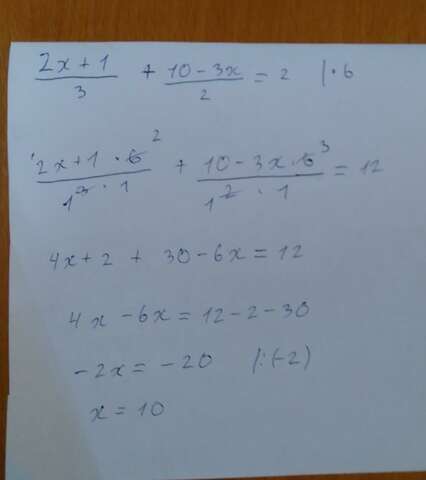 (2x + 1)/3 + (10 - 3x)/2 = 2 |·6
(2x + 1 · 6²)/(1 3 · 1) + (10 - 3x · 6³)/(1 2 · 1) = 12
4x + 2 + 30 - 6x = 12
4x - 6x = 12 - 2 - 30
-2x = -20 |:(-2)
x = 10